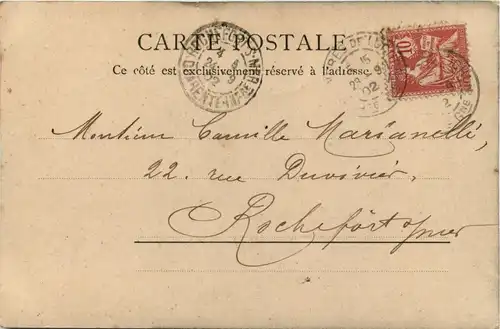 CARTE POSTALE
Ce côté est exclusivement réservé à l'adresse
10
Monsieur Camille Marianelli,
22. rue Duvivier,
Rochefort s/mer